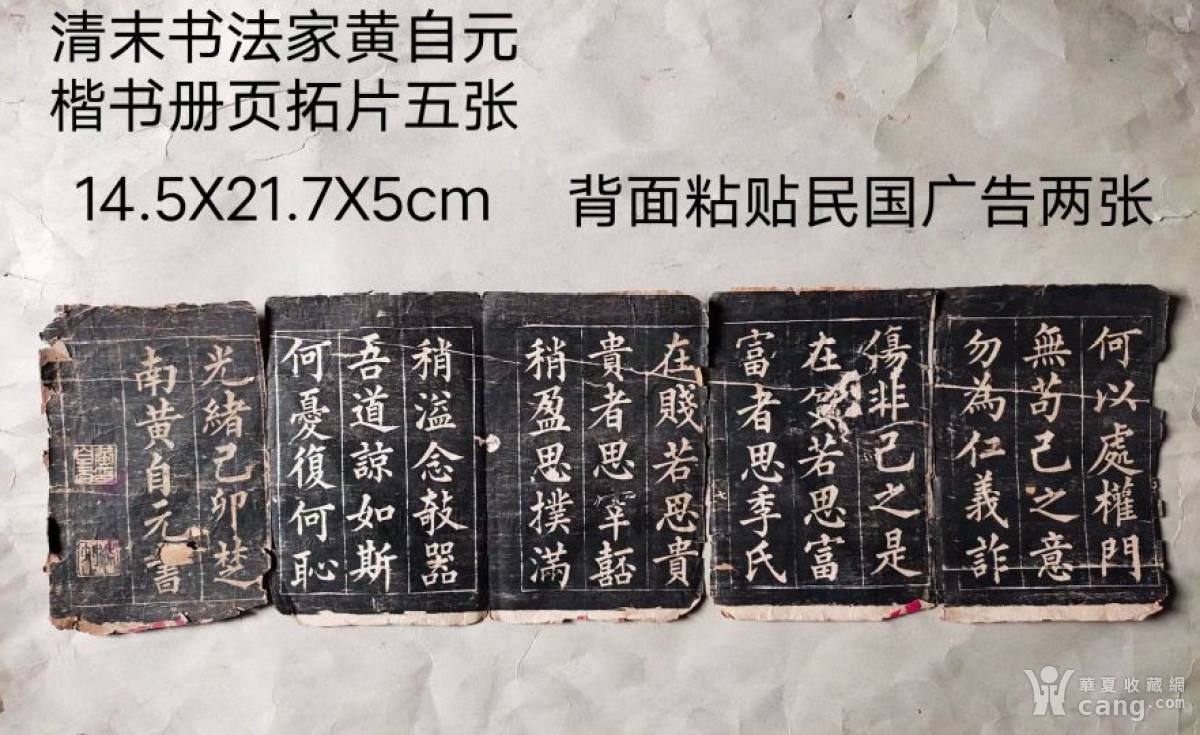 清末书法家黄自元
楷书册页拓片五张
14.5X21.7X5cm
背面粘贴民国广告两张
何以處權門
無苟己之意
勿為仁義詐
傷非己之是
在貧若思富
富者思季氏
在賤若思貴
貴者思宰嚭
稍盈思撲滿
稍溢念敧器
吾道諒如斯
何憂復何恥
光緒己卯楚
南黃自元書
華夏收藏網
cang.com